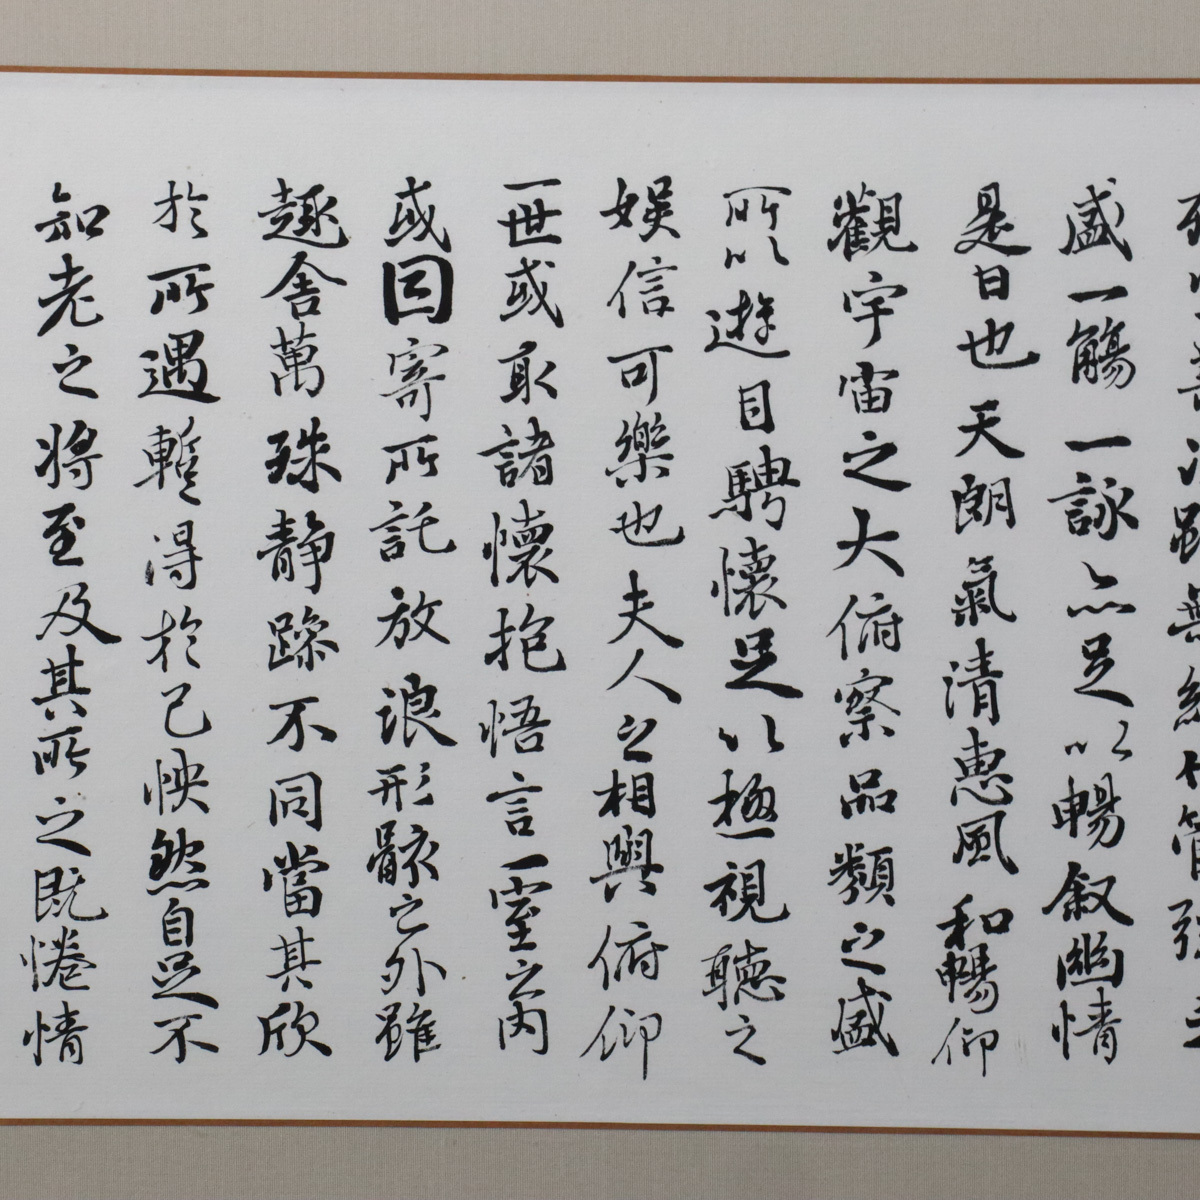 盛一觴一詠亦足以暢叙幽情
是日也天朗氣清惠風和暢仰
觀宇宙之大俯察品類之盛
所以遊目騁懷足以極視聽之
娛信可樂也夫人之相與俯仰
一世或取諸懷抱悟言一室之內
或因寄所託放浪形骸之外雖
趣舍萬殊静躁不同當其欣
於所遇暫得於己怏然自足不
知老之將至及其所之既惓情